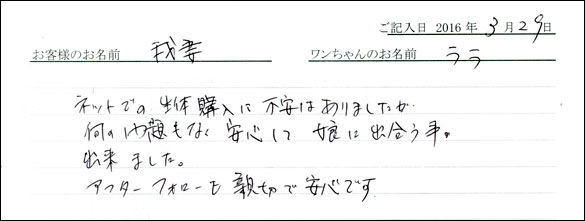 ご記入日 2016年 3月29日
お客様のお名前 我妻 ワンちゃんのお名前 ララ
ネットでの生体購入に不安はありましたが
何の問題もなく安心して娘に出合う事。
出来ました。
アフターフォローも親切で安心です